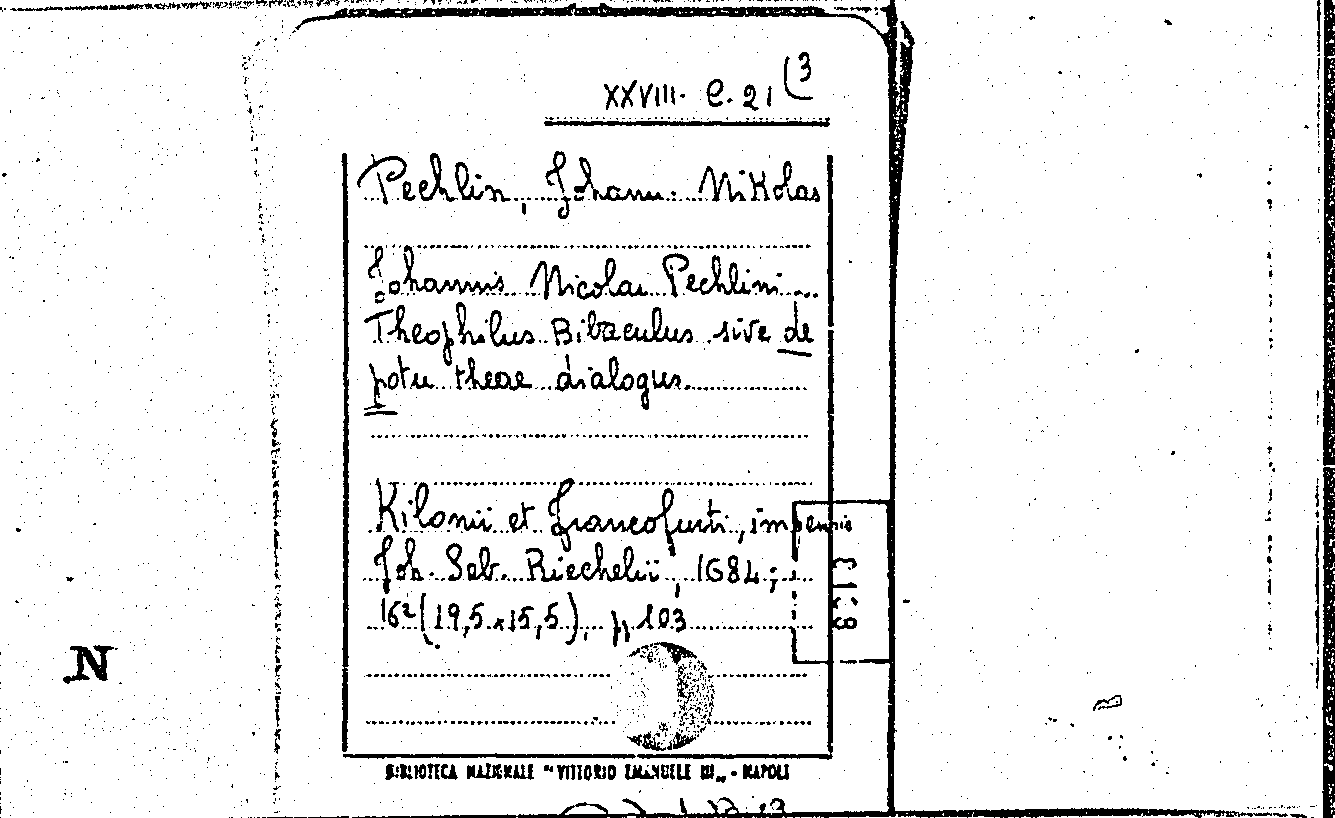 XXVIII. C. 21 (3
Pechlin, Johann. Nikolas
Johannis Nicolai Pechlini...
Theophilus Bibaculus sive de
potu theae dialogus.
Kilonii et Francofurti, impensis
Joh. Seb. Riechelii, 1684;
16° (19,5 x 15,5), p. 103
N
BIBLIOTECA NAZIONALE "VITTORIO EMANUELE III" - NAPOLI